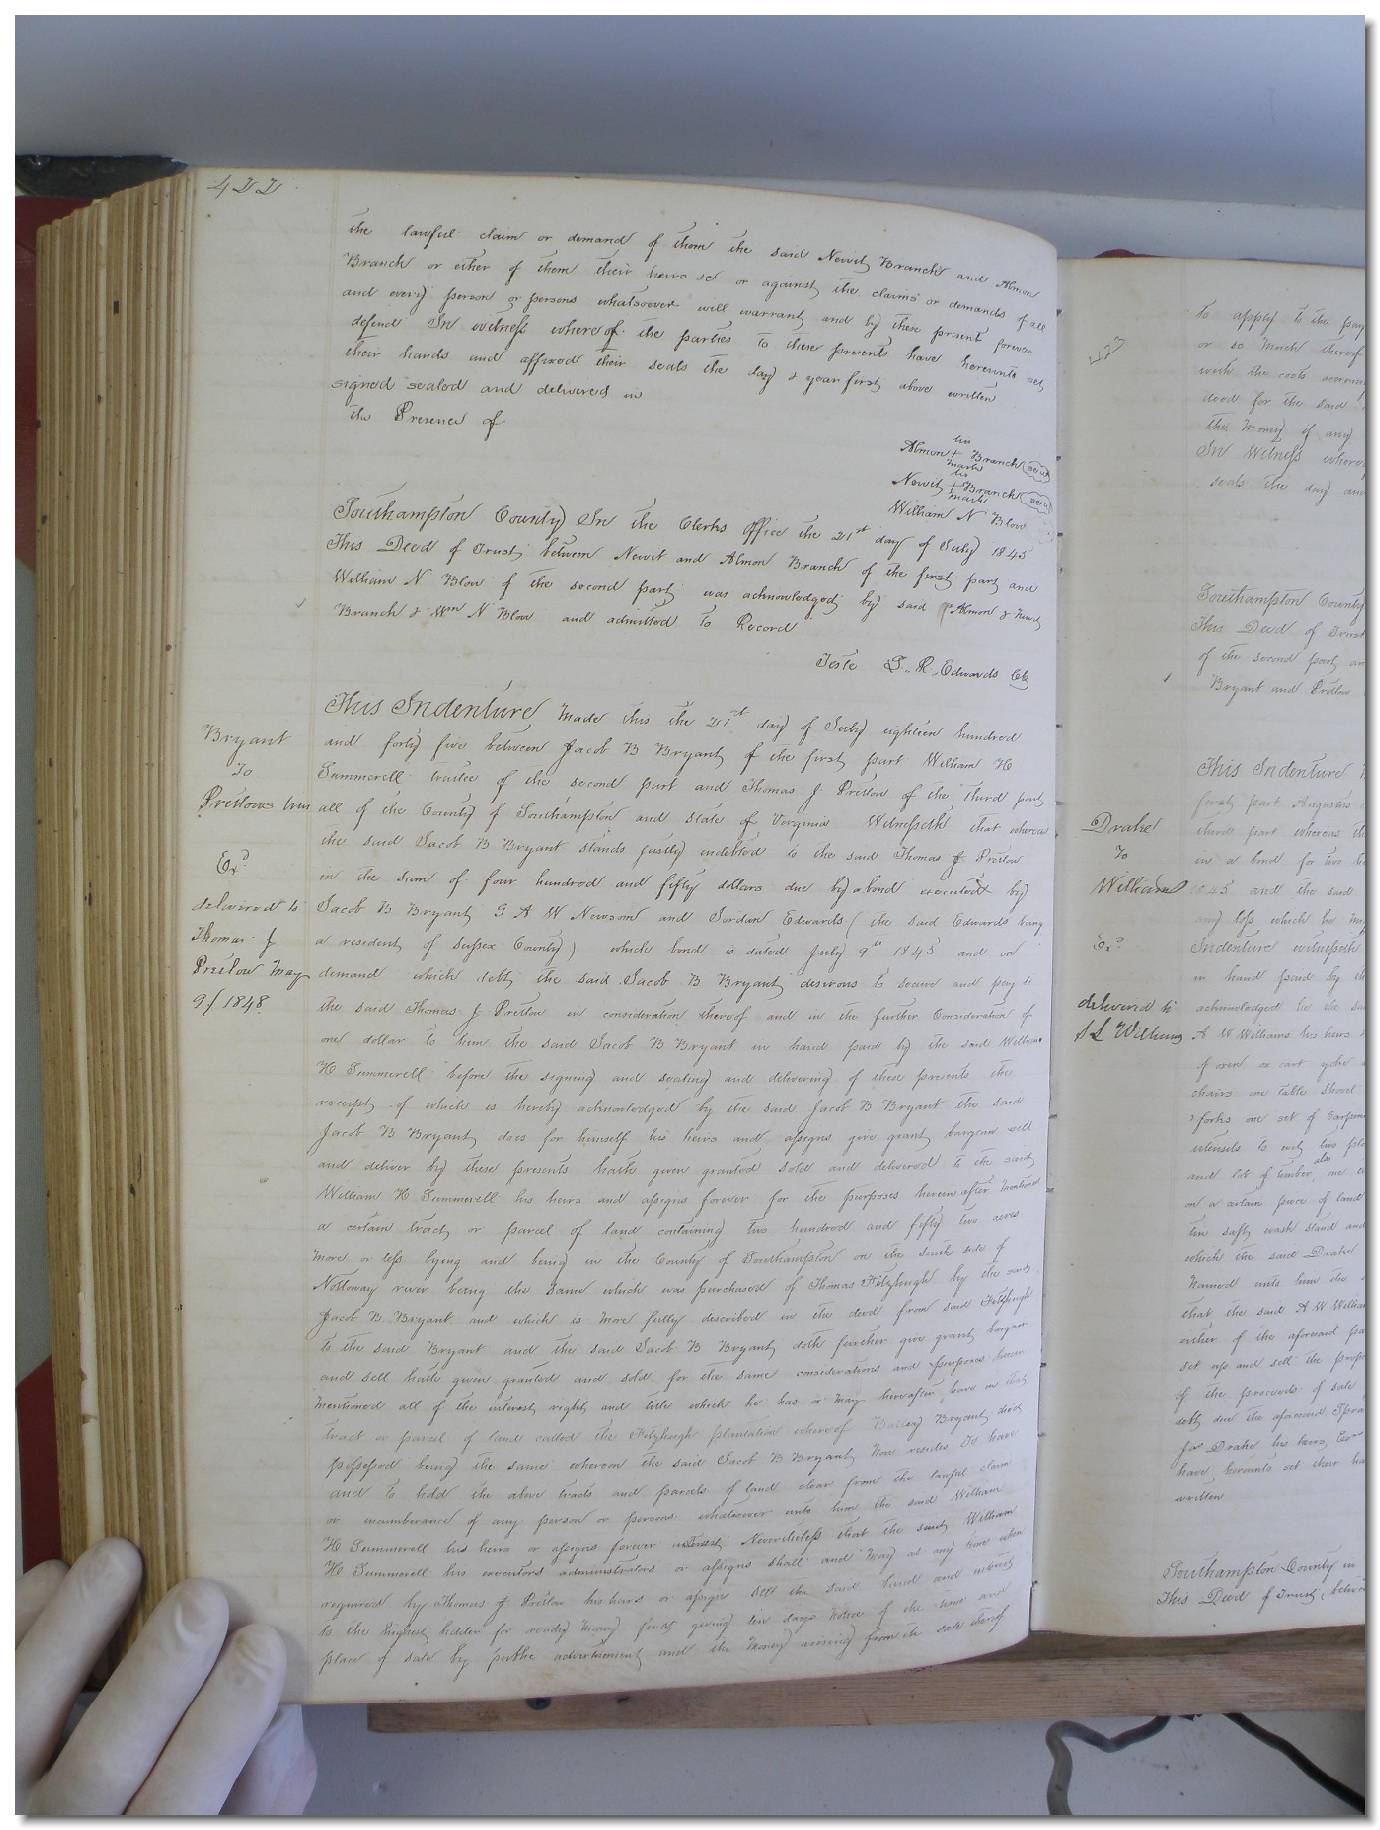 422
the lawful claim or demand of them the said Newit Branch and Almon
Branch or either of them their heirs &c or against the claims or demands of all
and every person or persons whatsoever will warrant and by these present forever
defend In witness whereof the parties to these presents have hereunto set
their hands and affixed their seals the day & year first above written
signed sealed and delivered in
the Presence of
his
Almon + Branch seal
mark
his
Newit + Branch seal
mark
William N Blow
Southampton County In the Clerks Office the 21st day of July 1845
This Deed of Trust between Newit and Almon Branch of the first part and
William N Blow of the second part was acknowledged by said Almon & Newit
Branch & Wm N Blow and admitted to Record
Teste L. R. Edwards Clk
Bryant
To
Pretlows
Exd
delivered to
Thomas J
Pretlow May
9/1848
This Indenture Made this the 21st day of July eighteen hundred
and forty five between Jacob B Bryant of the first part William H
Summerell trustee of the second part and Thomas J Pretlow of the third part
all of the County of Southampton and State of Virginia Witnesseth that whereas
the said Jacob B Bryant stands justly indebted to the said Thomas J Pretlow
in the sum of four hundred and fifty dollars due by a bond executed by
Jacob B Bryant G A W Newsom and Jordan Edwards (the said Edwards being
a resident of Sussex County) which bond is dated July 9th 1845 and on
demand which debt the said Jacob B Bryant desirous to secure and pay to
the said Thomas J Pretlow in consideration thereof and in the further Consideration of
one dollar to him the said Jacob B Bryant in hand paid by the said William
H Summerell before the signing and sealing and delivering of these presents the
receipt of which is hereby acknowledged by the said Jacob B Bryant the said
Jacob B Bryant does for himself his heirs and assigns give grant bargain sell
and deliver by these presents hath given granted sold and delivered to the said
William H Summerell his heirs and assigns forever for the purposes herein after mentioned
a certain tract or parcel of land containing two hundred and fifty two acres
more or less lying and being in the County of Southampton on the south side of
Nottoway river being the same which was purchased of Thomas Fitzhugh by the said
Jacob B Bryant and which is more fully described in the deed from said Fitzhugh
to the said Bryant and the said Jacob B Bryant doth further give grant bargain
and sell hath given granted and sold for the same considerations and purposes herein
mentioned all of the interest right and title which he has or may hereafter have in that
tract or parcel of land called the Fitzhugh plantation whereof Bailey Bryant died
possessed being the same whereon the said Jacob B Bryant now resides To have
and to hold the above tracts and parcels of land clear from the lawful claim
or incumberance of any person or persons whatsoever unto him the said William
H Summerell his heirs or assigns forever in Trust Nevertheless that the said William
H Summerell his executors administrators or assigns shall and may at any time when
required by Thomas J Pretlow his heirs or assigns sell the said land and interest
to the highest bidder for ready money first giving ten days notice of the time and
place of sale by public advertisement and the money arising from the sale thereof
423
to apply to the pay
or so much thereof
with the costs
deed for the said
the money of any
In Witness where
seals the day and
Southampton County
This Deed of Trust
of the second part an
Bryant and Pretlow
Drake
To
William
Exd
delivered to
S L Williams
This Indenture
first part
third part whereas th
in a bond for two
1845 and the said
any loss which he may
Indenture witnesseth
in hand paid by
acknowledged he the
A W Williams his heirs
of oxen ox cart yoke
chairs one table
forks one set of
utensils to wit, two
and lot of timber, also one
on a certain piece of land
wash stand and
which the said Drake
named unto him the
that the said A W Willia
either of the aforesaid pa
set up and sell the
of the proceeds of sale
debt due the aforesaid
for Drake his heirs
have hereunto set their ha
written
Southampton County in
This Deed of Trust between